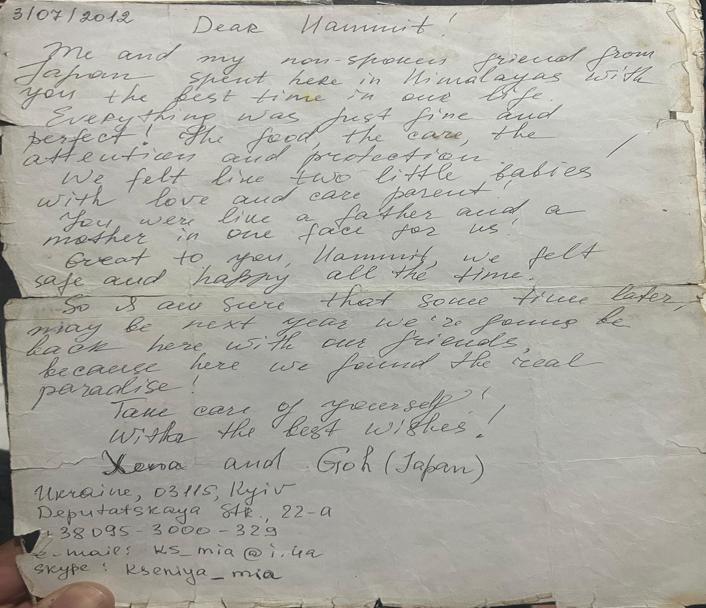 3/07/2012
Dear Hammit!
Me and my non-spoken friend from
Japan spent here in Himalayas with
you the best time in our life.
Everything was just fine and
perfect! The food, the care, the
attention and protection!
We felt like two little babies
with love and care parent!
You were like a father and a
mother in one face for us!
Great to you, Hammit, we felt
safe and happy all the time.
So I am sure that some time later,
may be next year we're gonna be
back here with our friends,
because here we found the real
paradise!
Take care of yourself!
With the best wishes!
Xena and Goh (Japan)
Ukraine, 03115, Kyiv
Deputatskaya Str., 22-a
+38095-3000-329
e-mail: ks_mia@i.ua
skype: kseniya_mia